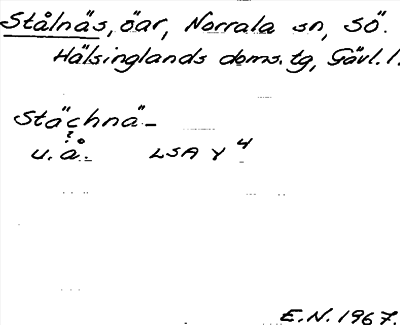 Stålnäs, öar, Norrala sn, SÖ.
Hälsinglands doms. tg, Gävl. l.
Stächnä-
u. å. LSA Y 4
E.N. 1967.